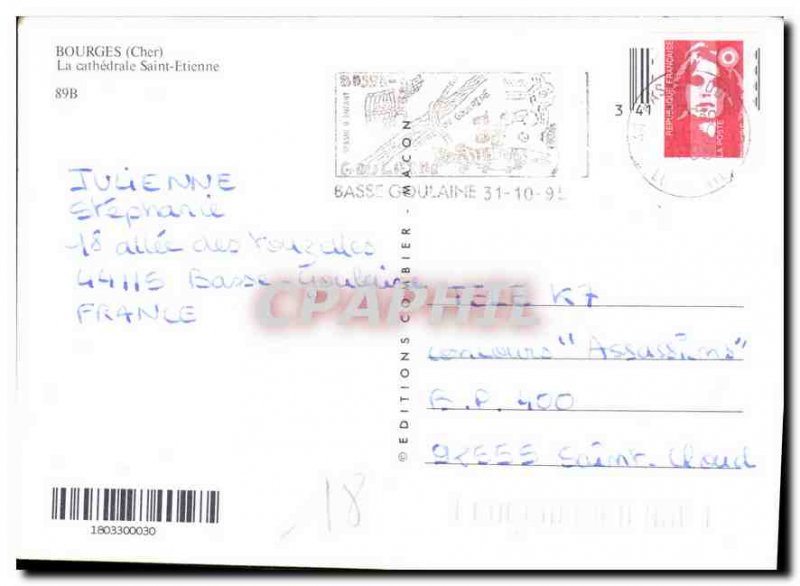 BOURGES (Cher)
La cathédrale Saint-Etienne
89B
GOULAINE
BASSE GOULAINE 31-10-95
3 41
RÉPUBLIQUE FRANÇAISE
LA POSTE
JULIENNE
Stéphanie
18 allée des
44115 Basse Goulaine
FRANCE
CPAPHIL
© EDITIONS COMBIER - MACON
TELE K7
concours "Assassins"
B.P. 400
92555 Saint-Cloud
18
1803300030